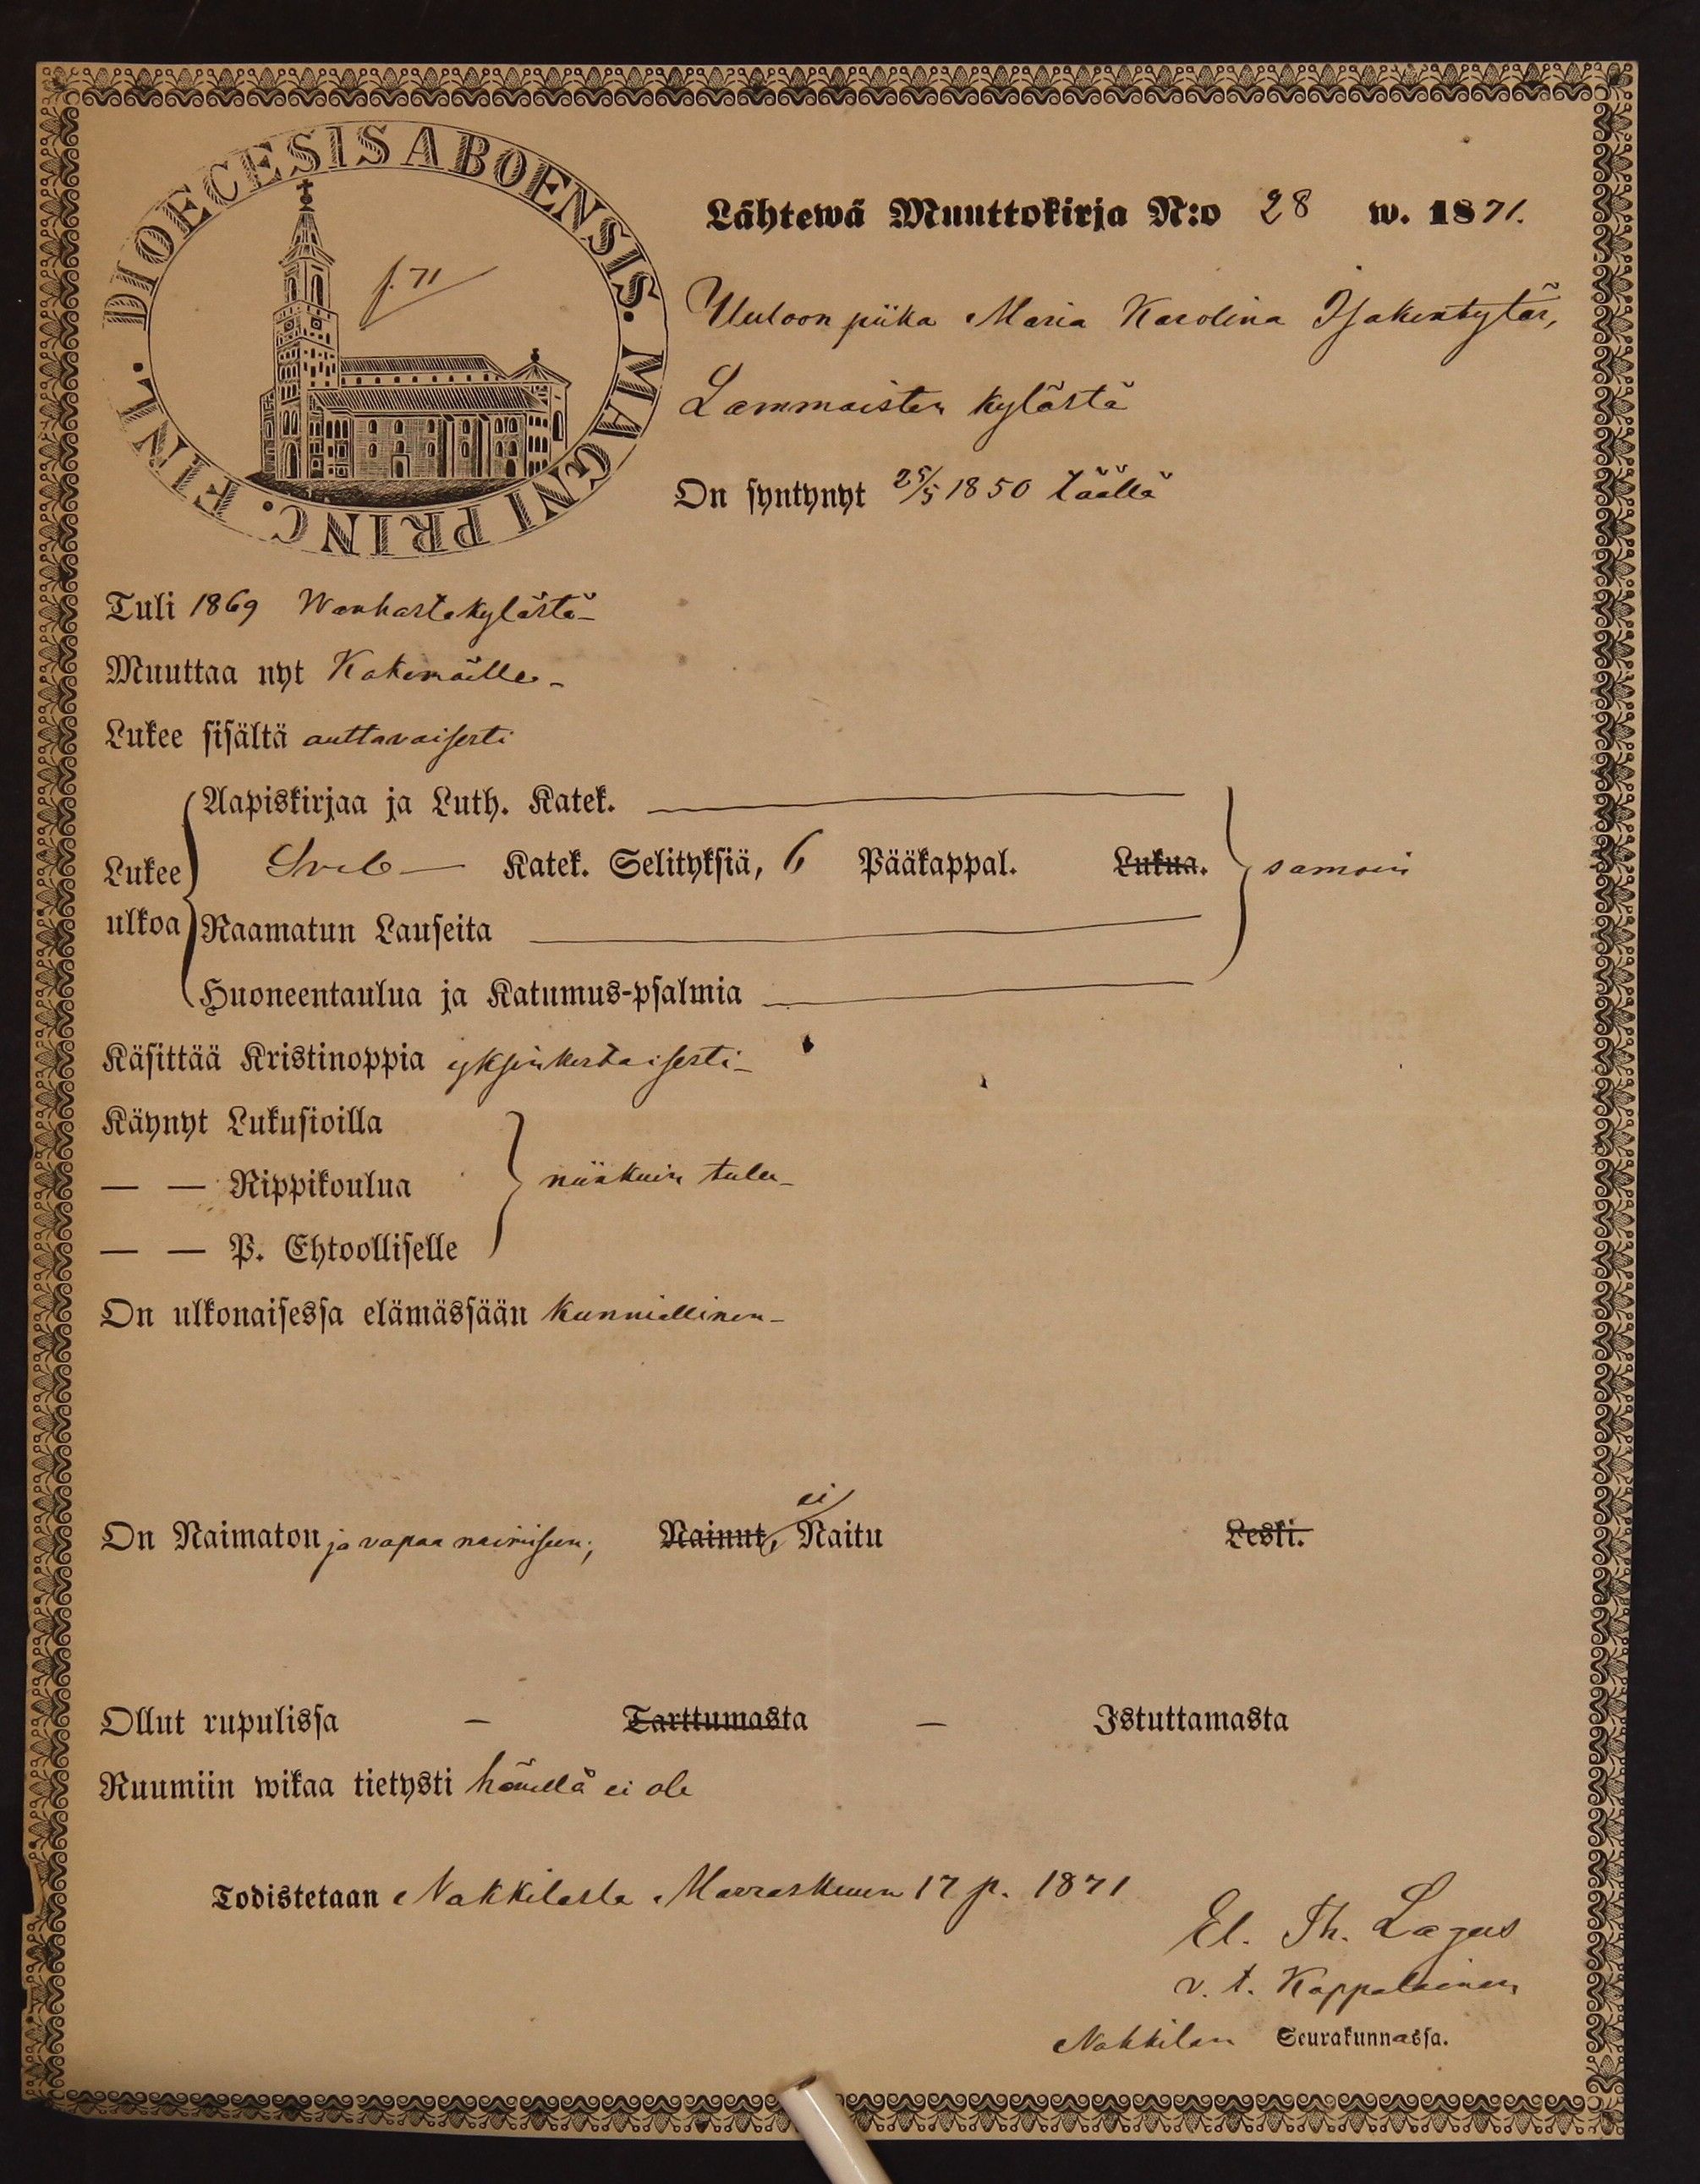 DIOECESIS ABOENSIS. MAGNI PRINC. FINL.
f. 71
Lähtewä Muuttokirja N:o 28 w. 1871.
piika Maria Karolina Isakintytär,
Lammaisten kylästä
On syntynyt 25/5 1850 täällä
Tuli 1869 Wanhastakylästä
Muuttaa nyt Kokemäille
Lukee sisältä auttavaisesti
Aapiskirjaa ja Luth. Katek.
Lukee ulkoa
Sveb Katek. Selityksiä, 6 Pääkappal. Lukua. samoin
Raamatun Lauseita
Huoneentaulua ja Katumus-psalmia
Käsittää Kristinoppia yksinkertaisesti
Käynyt Lukusioilla
— — Rippikoulua niinkuin tulee
— — P. Ehtoolliselle
On ulkonaisessa elämässään kunniallinen
On Naimaton ja vapaa naimiseen; Nainut, ei Naitu Leski.
Ollut rupulissa — Tarttumasta — Istuttamasta
Ruumiin wikaa tietysti hänellä ei ole
Todistetaan Nakkilasta Marraskuun 17 p. 1871
El. Th. Lagus
v. t. Kappalainen
Nakkilan Seurakunnassa.